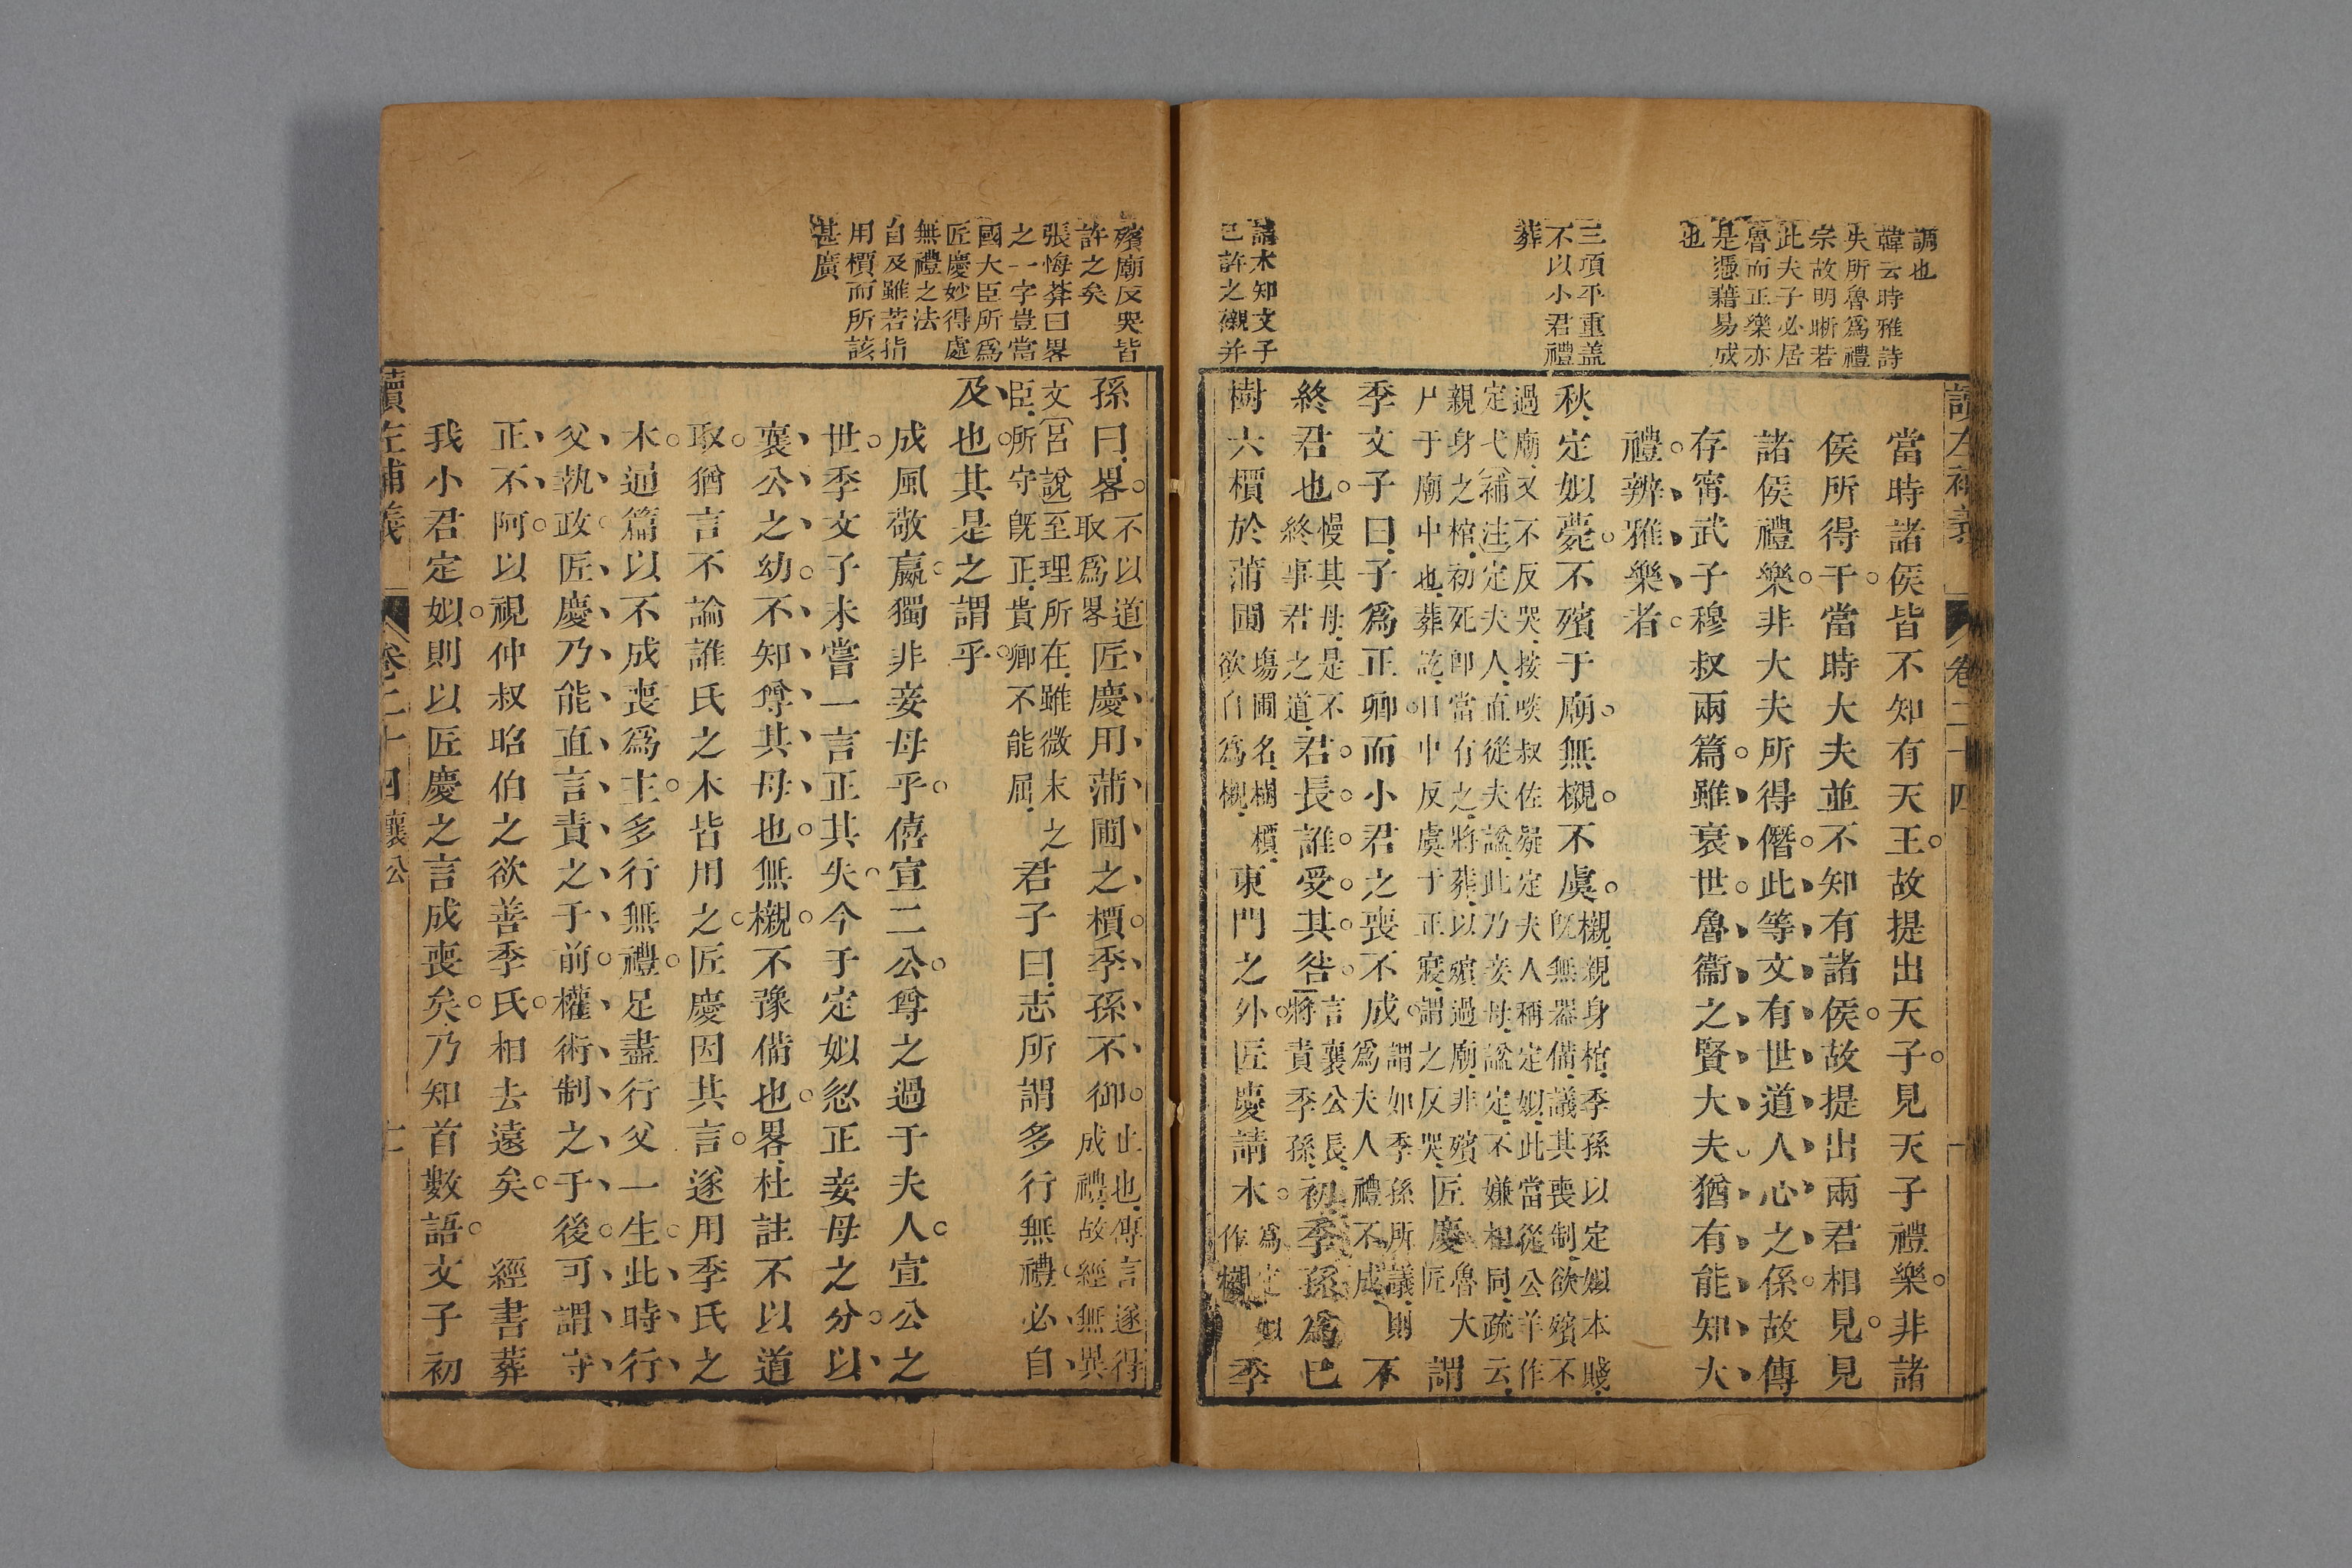 調也
韓云時雅詩
失所魯爲禮
宗故明晰若
此夫子必居
魯而正樂亦
是憑藉易成
也
三項平重盖
不以小君禮
葬
請木知文子
已許之櫬并
讀左補義
卷二十四
當時諸侯皆不知有天王故提出天子見天子禮樂非諸
侯所得干當時大夫並不知有諸侯故提出兩君相見見
諸侯禮樂非大夫所得僭此等文有世道人心之係故傳
存甯武子穆叔兩篇雖衰世魯衞之賢大夫猶有能知大
禮辨雅樂者
秋定姒薨不殯于廟無櫬不虞
櫬親身棺季孫以定姒本賤
旣無器備議其喪制欲殯不
過廟又不反哭按啖叔佐疑定夫人稱定姒此當從公羊作
定弋補注定夫人直從夫謚此乃妾母謚定不嫌相同疏云
親身之棺初死卽當有之將葬以殯過廟非殯
尸于廟中也葬訖日中反虞于正寢謂之反哭
匠慶
魯大
匠
謂
季文子曰子爲正卿而小君之喪不成
謂如季孫所議則
爲夫人禮不成
不
終君也
慢其母是不
終事君之道
君長誰受其咎
言襄公長
將責季孫
初季孫爲巳
樹六檟於蒲圃
塲圃名檟
欲自爲櫬
東門之外匠慶請木
爲定姒
作櫬
季
殯廟反哭皆
許之矣
張悔葊曰畧
之一字豈當
國大臣所爲
匠慶妙得處
無禮之法
自及雖若指
用檟而所該
甚廣
孫曰畧
不以道
取爲畧
匠慶用蒲圃之檟季孫不御
止也傳言遂得
成禮故經無異
文呂說至理所在雖微末之
臣所守旣正貴卿不能屈
君子曰志所謂多行無禮必自
及也其是之謂乎
成風敬嬴獨非妾母乎僖宣二公尊之過于夫人宣公之
世季文子未嘗一言正其失今于定姒忽正妾母之分以
襄公之幼不知尊其母也無櫬不豫備也畧杜註不以道
取猶言不論誰氏之木皆用之匠慶因其言遂用季氏之
木通篇以不成喪爲主多行無禮足盡行父一生此時行
父執政匠慶乃能直言責之于前權術制之于後可謂守
正不阿以視仲叔昭伯之欲善季氏相去遠矣　經書葬
我小君定姒則以匠慶之言成喪矣乃知首數語文子初
讀左補義
卷二十四襄公